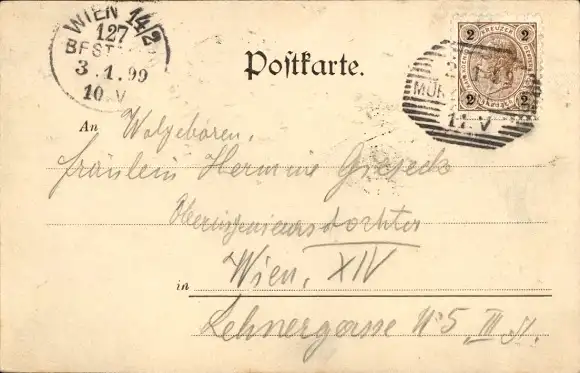 WIEN 14/2
127
BEST
3.1.99
10.V
Postkarte.
2 KREUZER 2
2 2
MÜR
11.V
An Wolgeboren,
fräulein Hermine
Oberingenieurstochter
in Wien, XIV
Lehnergasse No 5, III St.